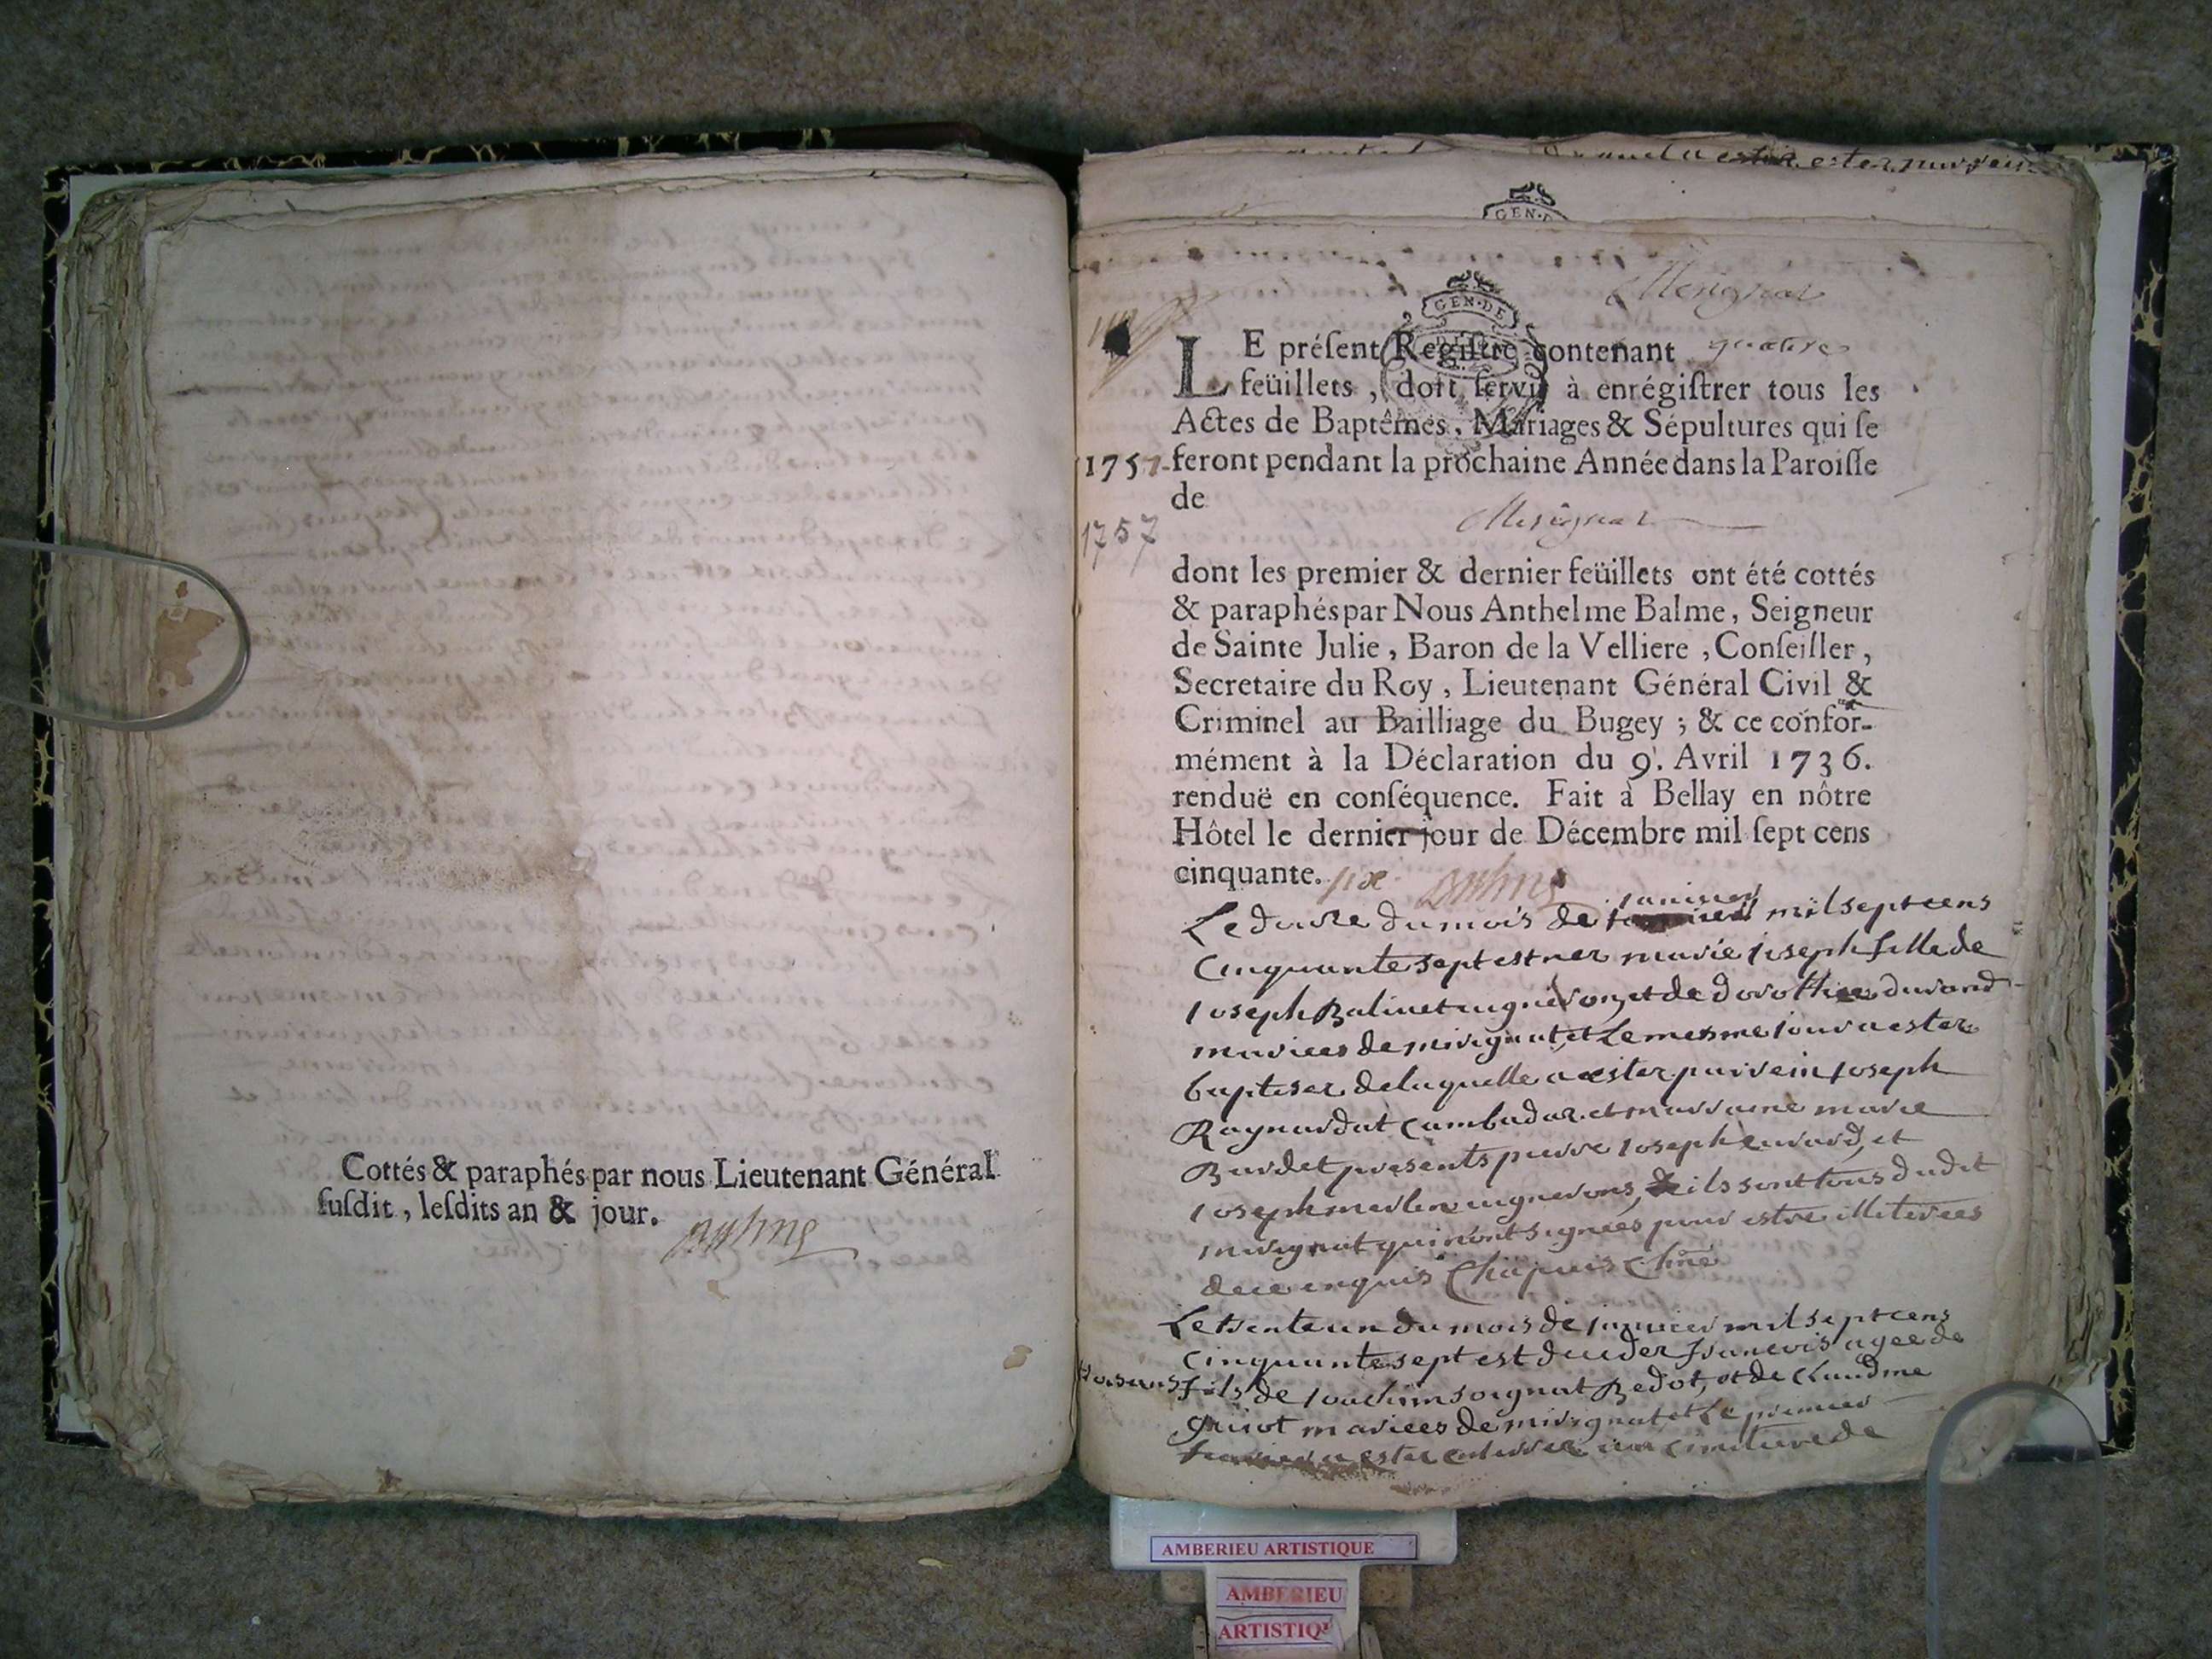 Cottés & paraphés par nous Lieutenant Général
ſuſdit, leſdits an & jour.
GEN·D
GEN·DE
Merignat
LE préſent Regiſtre contenant quatre
feüillets, doit ſervir à enrégiſtrer tous les
Actes de Baptêmes, Mariages & Sépultures qui ſe
1757 feront pendant la prochaine Année dans la Paroiſſe
de
1757
Merignat
dont les premier & dernier feüillets ont été cottés
& paraphés par Nous Anthelme Balme, Seigneur
de Sainte Julie, Baron de la Velliere, Conſeiller,
Secretaire du Roy, Lieutenant Général Civil &
Criminel au Bailliage du Bugey; & ce confor-
mément à la Déclaration du 9. Avril 1736.
renduë en conſéquence. Fait à Bellay en nôtre
Hôtel le dernier jour de Décembre mil ſept cens
cinquante. six Balme
Le douze du mois de janvier mil sept cens
cinquante sept est nee marie joseph fille de
joseph Balivet uigneron, et de dorothee durand
mariees de mirignat, et Le mesme jour a ester
baptiser de laquelle a ester parrein joseph
Raynardat Cambadar et marraine marie
Burdet presents pierre joseph eurard, et
joseph merlin uignerons, ils sont tous dudit
mirignat qui n'ont signees pour estre illiterees
de ce enquis Chapuis Cure
Le trente un du mois de janvier mil sept cens
cinquante sept est deceder francois agee de
trois ans fils de joachim soignat Bedot, et de Claudine
guiot mariees de mirignat et Le premier
a ester enterrer au cimetiere de
AMBERIEU ARTISTIQUE
AMBERIEU
ARTISTIQ